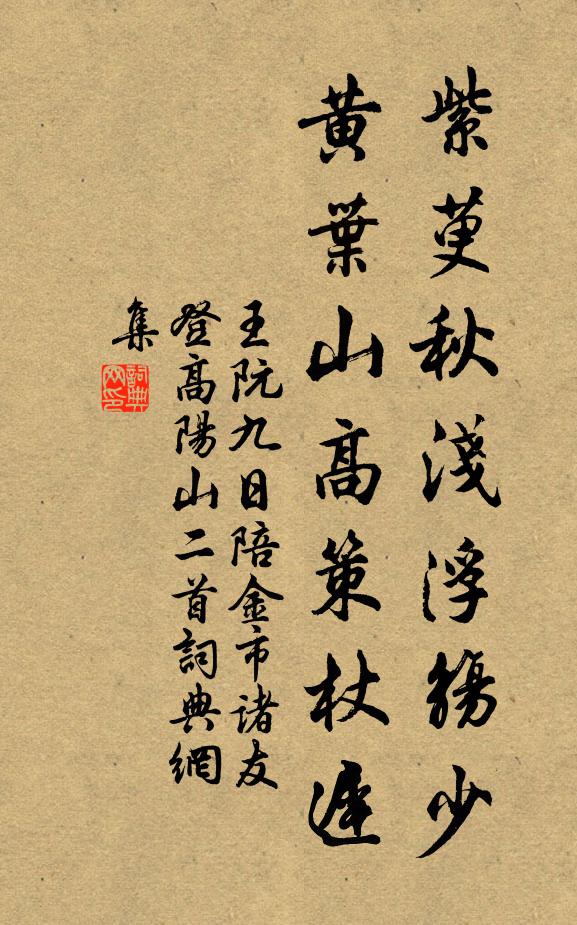 紫萸秋淺浮觴少
黃葉山高策杖遲
王阮九日陪金市諸友
登高陽山二首詞典網
集
詞典
網印